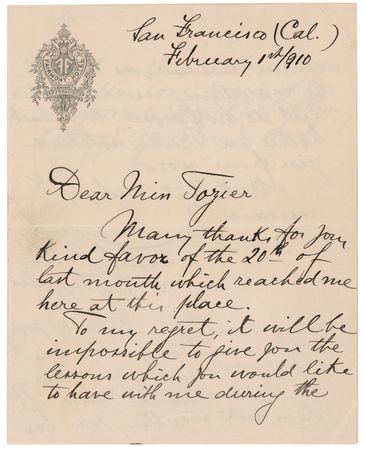 FAIRMONT HOTEL
San Francisco (Cal.)
February 1st/910
Dear Miss Tozier
Many thanks for your
kind favor of the 20th of
last month which reached me
here at this place.
To my regret, it will be
impossible to give you the
lessons which you would like
to have with me during the